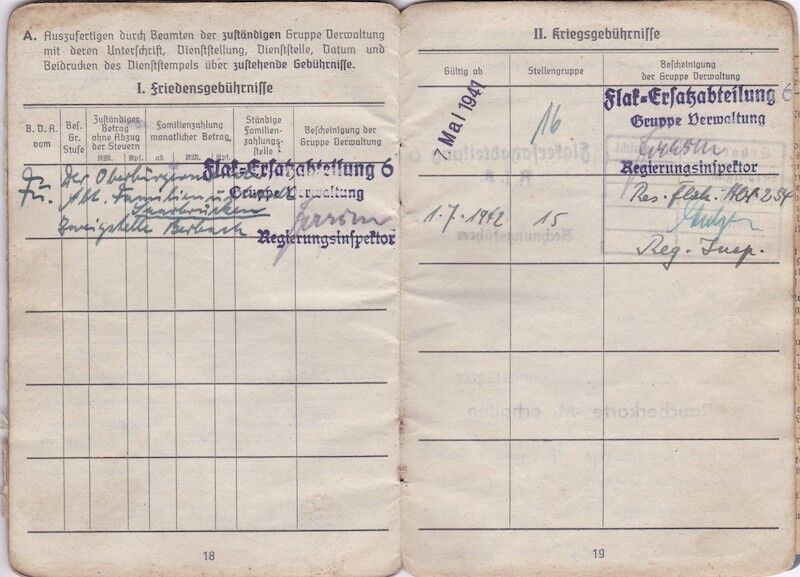 A. Auszufertigen durch Beamten der zuständigen Gruppe Verwaltung
mit deren Unterschrift, Dienststellung, Dienststelle, Datum und
Beidrucken des Dienststempels über zustehende Gebührnisse.
I. Friedensgebührnisse
B. D. A.
vom
Bes.
Gr.
Stufe
Zuständiger
Betrag
ohne Abzug
der Steuern
RM.
Rpf.
Familienzahlung
monatlicher Betrag
ab
RM.
Rpf.
Ständige
Familien-
zahlungs-
stelle
Bescheinigung der
Gruppe Verwaltung
Der Oberbürgerm
Abt. Familienu
Saarbrücken
Zweigstelle Berbach
Flak-Ersatzabteilung 6
Gruppe Verwaltung
Regierungsinspektor
18
II. Kriegsgebührnisse
Gültig ab
Stellengruppe
Bescheinigung
der Gruppe Verwaltung
7. Mai 1941
16
Flak-Ersatzabteilung 6
Gruppe Verwaltung
Regierungsinspektor
1.7.1942
15
Res. Flak-Abt 254
Reg. Insp.
19